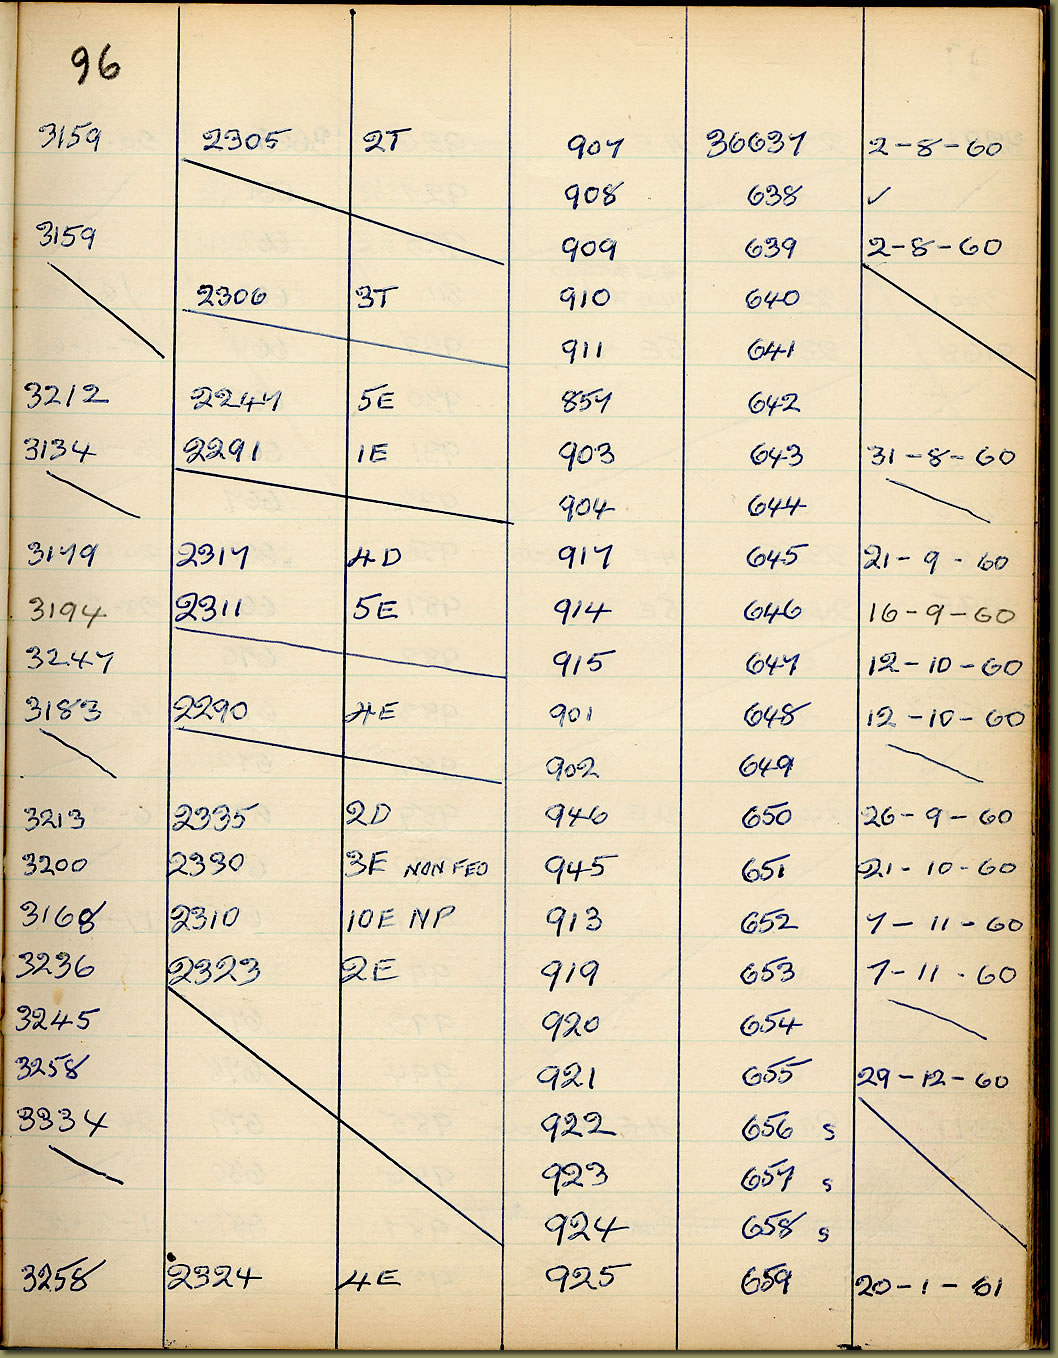 96
3159 2305 2T 907 36637 2-8-60
908 638 ✓
3159 909 639 2-8-60
2306 3T 910 640
911 641
3212 2247 5E 857 642
3134 2291 1E 903 643 31-8-60
904 644
3179 2317 4D 917 645 21-9-60
3194 2311 5E 914 646 16-9-60
3247 915 647 12-10-60
3183 2290 4E 901 648 12-10-60
902 649
3213 2335 2D 946 650 26-9-60
3200 2330 3E NON FED 945 651 21-10-60
3168 2310 10E NP 913 652 7-11-60
3236 2323 2E 919 653 7-11-60
3245 920 654
3258 921 655 29-12-60
3334 922 656 s
923 657 s
924 658 s
3258 2324 4E 925 659 20-1-61